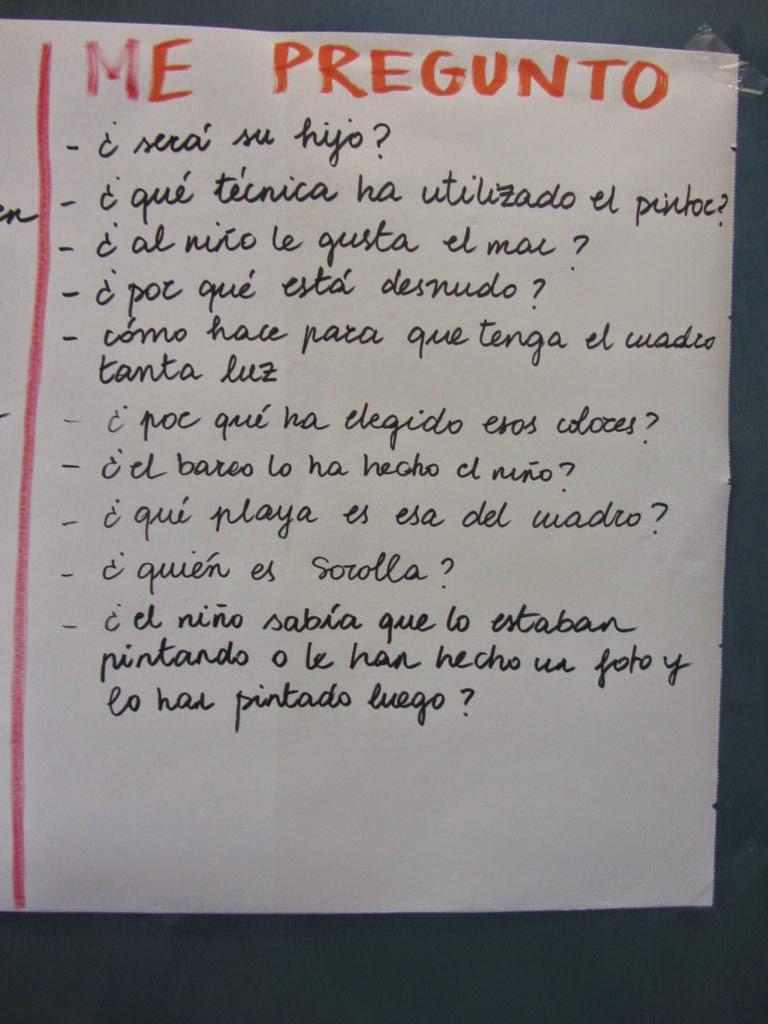 ME PREGUNTO
- ¿será su hijo?
en - ¿qué técnica ha utilizado el pintor?
- ¿al niño le gusta el mar?
- ¿por qué está desnudo?
- cómo hace para que tenga el cuadro
tanta luz
- ¿por qué ha elegido esos colores?
- ¿el barco lo ha hecho el niño?
- ¿qué playa es esa del cuadro?
- ¿quién es Sorolla?
- ¿el niño sabía que lo estaban
pintando o le han hecho un foto y
lo han pintado luego?